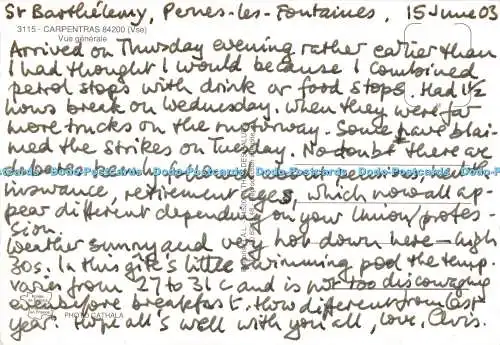 St Barthélemy, Pernes-les-Fontaines, 15 June 03
3115 - CARPENTRAS 84200 (Vse)
Vue générale
Arrived on Thursday evening rather earlier than
I had thought I would because I combined
petrol stops with drink or food stops. Had 1½
hours break on Wednesday, when they were far
more trucks on the motorway. Some have blai-
med the strikes on Tuesday. No doubt there are
Dodo-Postcards Dodo-Postcards Dodo-Postcards Dodo-Postcards Dodo-Postcards
insurance, retirement ages, which now all ap-
pear different depending on your Union/profes-
sion.
Weather sunny and very hot down here – high
30s. In this gîte's little swimming pool the temp.
varies from 27 to 31 c and is not too discouraging
even before breakfast. How different from last
year. Hope all's well with you all, love, Chris.
PHOTO CATHALA